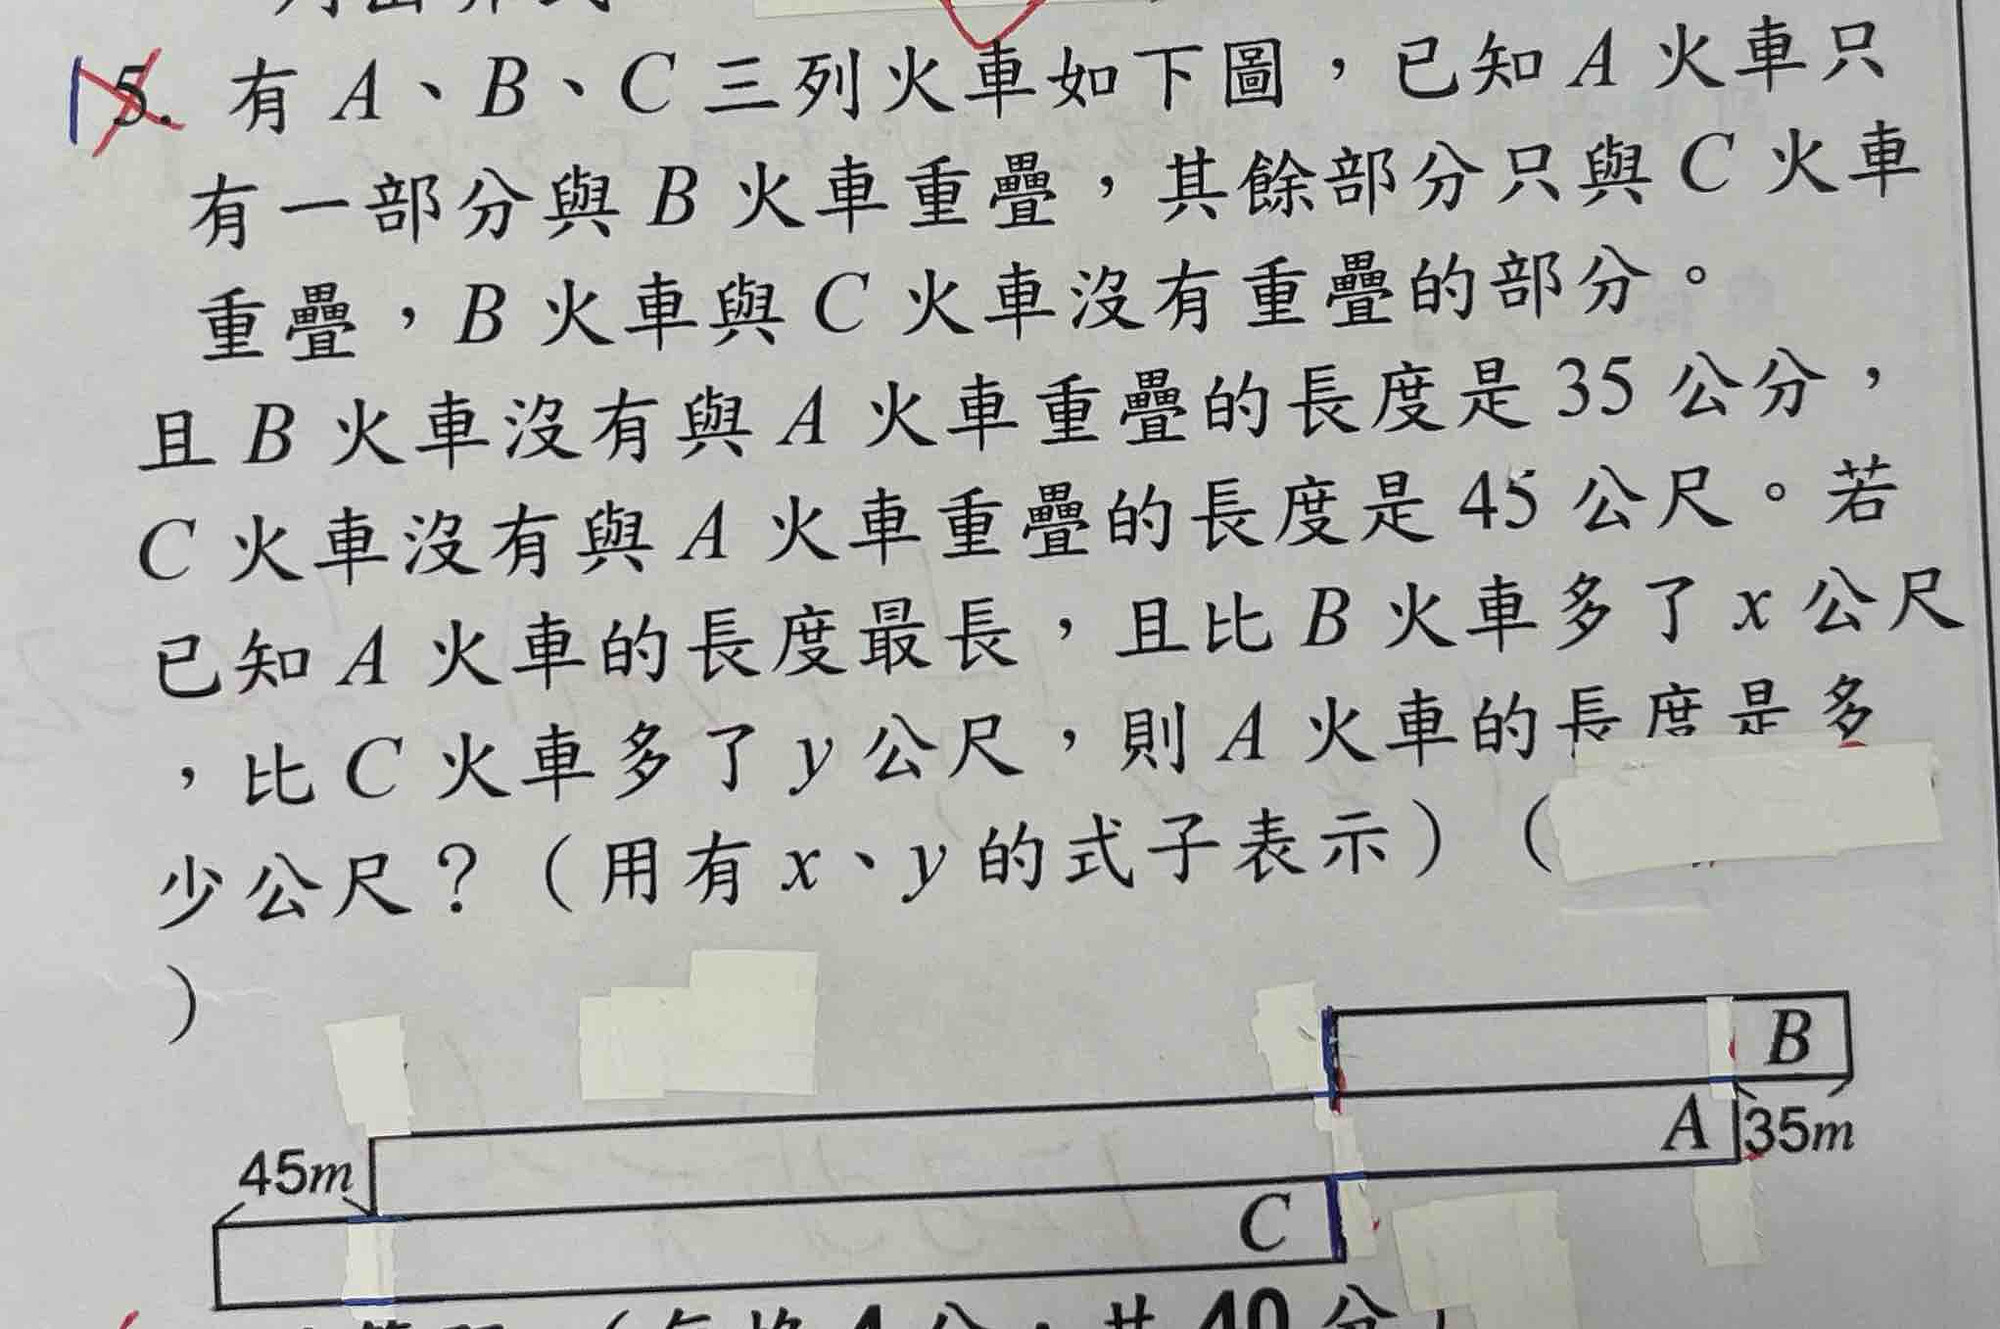 15. 有 A、B、C 三列火車如下圖，已知 A 火車只
有一部分與 B 火車重疊，其餘部分只與 C 火車
重疊，B 火車與 C 火車沒有重疊的部分。
且 B 火車沒有與 A 火車重疊的長度是 35 公分，
C 火車沒有與 A 火車重疊的長度是 45 公尺。若
已知 A 火車的長度最長，且比 B 火車多了 x 公尺
，比 C 火車多了 y 公尺，則 A 火車的長度是多
少公尺？（用有 x、y 的式子表示）（
）
B
A
35m
45m
C